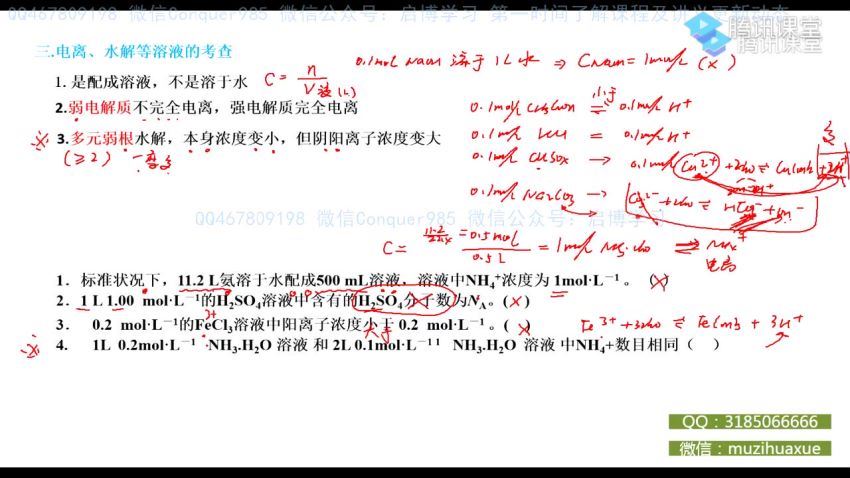 QQ467809198 微信Conquer985 微信公众号：启博学习 第一时间了解课程及讲义更新动态
腾讯课堂
腾讯课堂
三.电离、水解等溶液的考查
1. 是配成溶液，不是溶于水 C = n/V液(L)
0.1mol NaCl 溶于 1L水 ⇒
2.弱电解质不完全电离，强电解质完全电离
3.多元弱根水解，本身浓度变小，但阴阳离子浓度变大
(≥2) 一变多
小于
0.1mol/L H+
0.1mol/L
0.1mol/L Na2CO3 →
QQ467809198 微信Conquer985 微信公众号：启博学习
C = = 0.5mol/0.5L = 1mol/L NH3·H2O ⇌ NH4+
电离
1．标准状况下，11.2 L氨溶于水配成500 mL溶液，溶液中NH4+浓度为 1mol·L－1 。（×）
2．1 L 1.00 mol·L－1的H2SO4溶液中含有的H2SO4分子数为NA。(×)
3． 0.2 mol·L－1的FeCl3溶液中阳离子浓度小于 0.2 mol·L－1 。( ×)
大于
Fe3+ + 3H2O ⇌ Fe(OH)3 + 3H+
4. 1L 0.2mol·L－1 NH3.H2O 溶液 和 2L 0.1mol·L－1 1 NH3.H2O 溶液 中NH4+数目相同（ ）
QQ：3185066666
微信：muzihuaxue